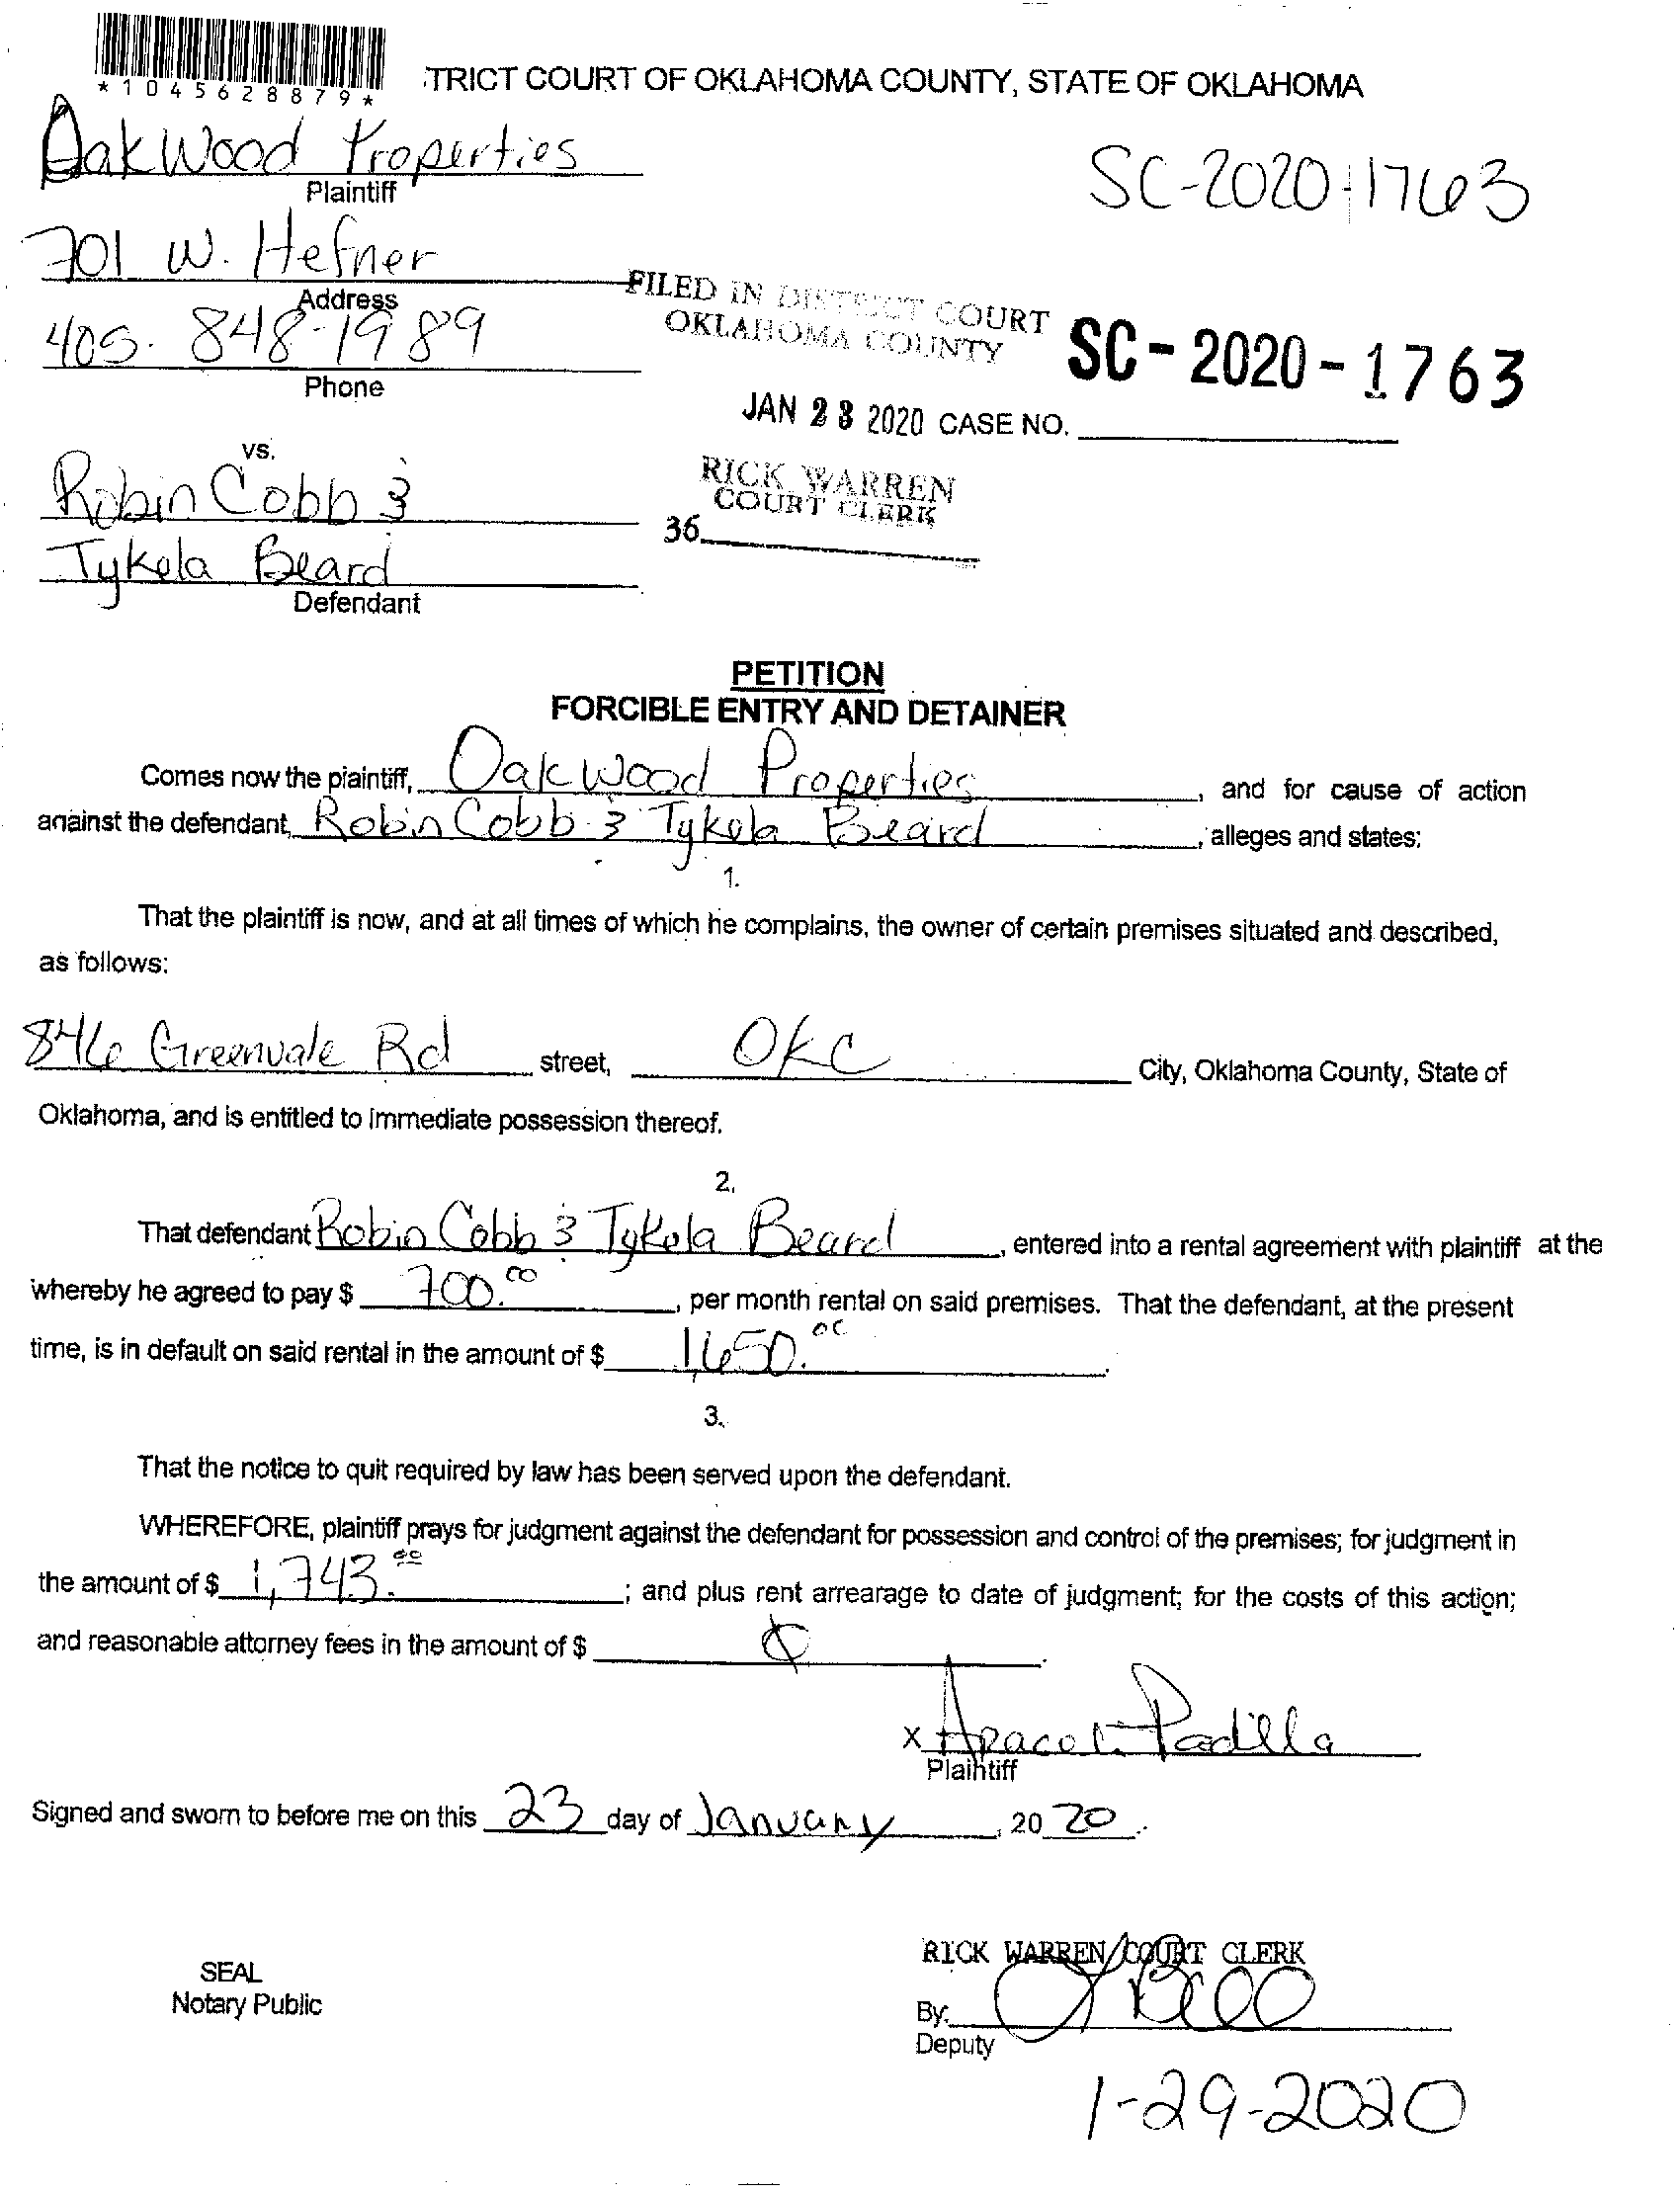 *1045628879*
TRICT COURT OF OKLAHOMA COUNTY, STATE OF OKLAHOMA
OakWood Properties
Plaintiff
SC-2020-1763
701 W. Hefner
Address
FILED IN DISTRICT COURT
OKLAHOMA COUNTY
405. 848-1989
Phone
SC-2020-1763
JAN 23 2020 CASE NO.
vs.
RICK WARREN
COURT CLERK
36
Robin Cobb &
Tykela Beard
Defendant
PETITION
FORCIBLE ENTRY AND DETAINER
Comes now the plaintiff, Oakwood Properties, and for cause of action
against the defendant, Robin Cobb & Tykela Beard, alleges and states:
1.
That the plaintiff is now, and at all times of which he complains, the owner of certain premises situated and described,
as follows:
846 Greenvale Rd street, OKC City, Oklahoma County, State of
Oklahoma, and is entitled to immediate possession thereof.
2.
That defendant Robin Cobb & Tykela Beard, entered into a rental agreement with plaintiff at the
whereby he agreed to pay $ 700.00, per month rental on said premises. That the defendant, at the present
time, is in default on said rental in the amount of $ 1,650.00.
3.
That the notice to quit required by law has been served upon the defendant.
WHEREFORE, plaintiff prays for judgment against the defendant for possession and control of the premises; for judgment in
the amount of $ 1,743.00; and plus rent arrearage to date of judgment; for the costs of this action;
and reasonable attorney fees in the amount of $
x Padilla
Plaintiff
Signed and sworn to before me on this 23 day of January, 20 20.
RICK WARREN, COURT CLERK
SEAL
Notary Public
By:
Deputy
1-29-2020